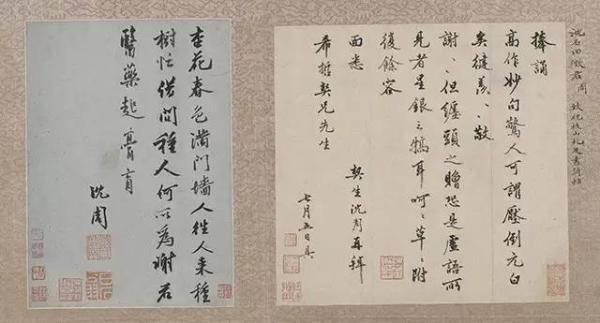 沈石田徵君周
捧誦
高作妙句驚人可謂壓倒元白
矣健羨、、敬
謝、、但纏頭之贈恐是虛語所
見者星銀之犒耳呵、、草、、附
復餘容
面悉
希哲契兄先生
契生沈周再拜
七月五日
杏花春色滿門墻人往人來種
樹忙借問種人何以為謝君
醫藥起膏肓
沈周